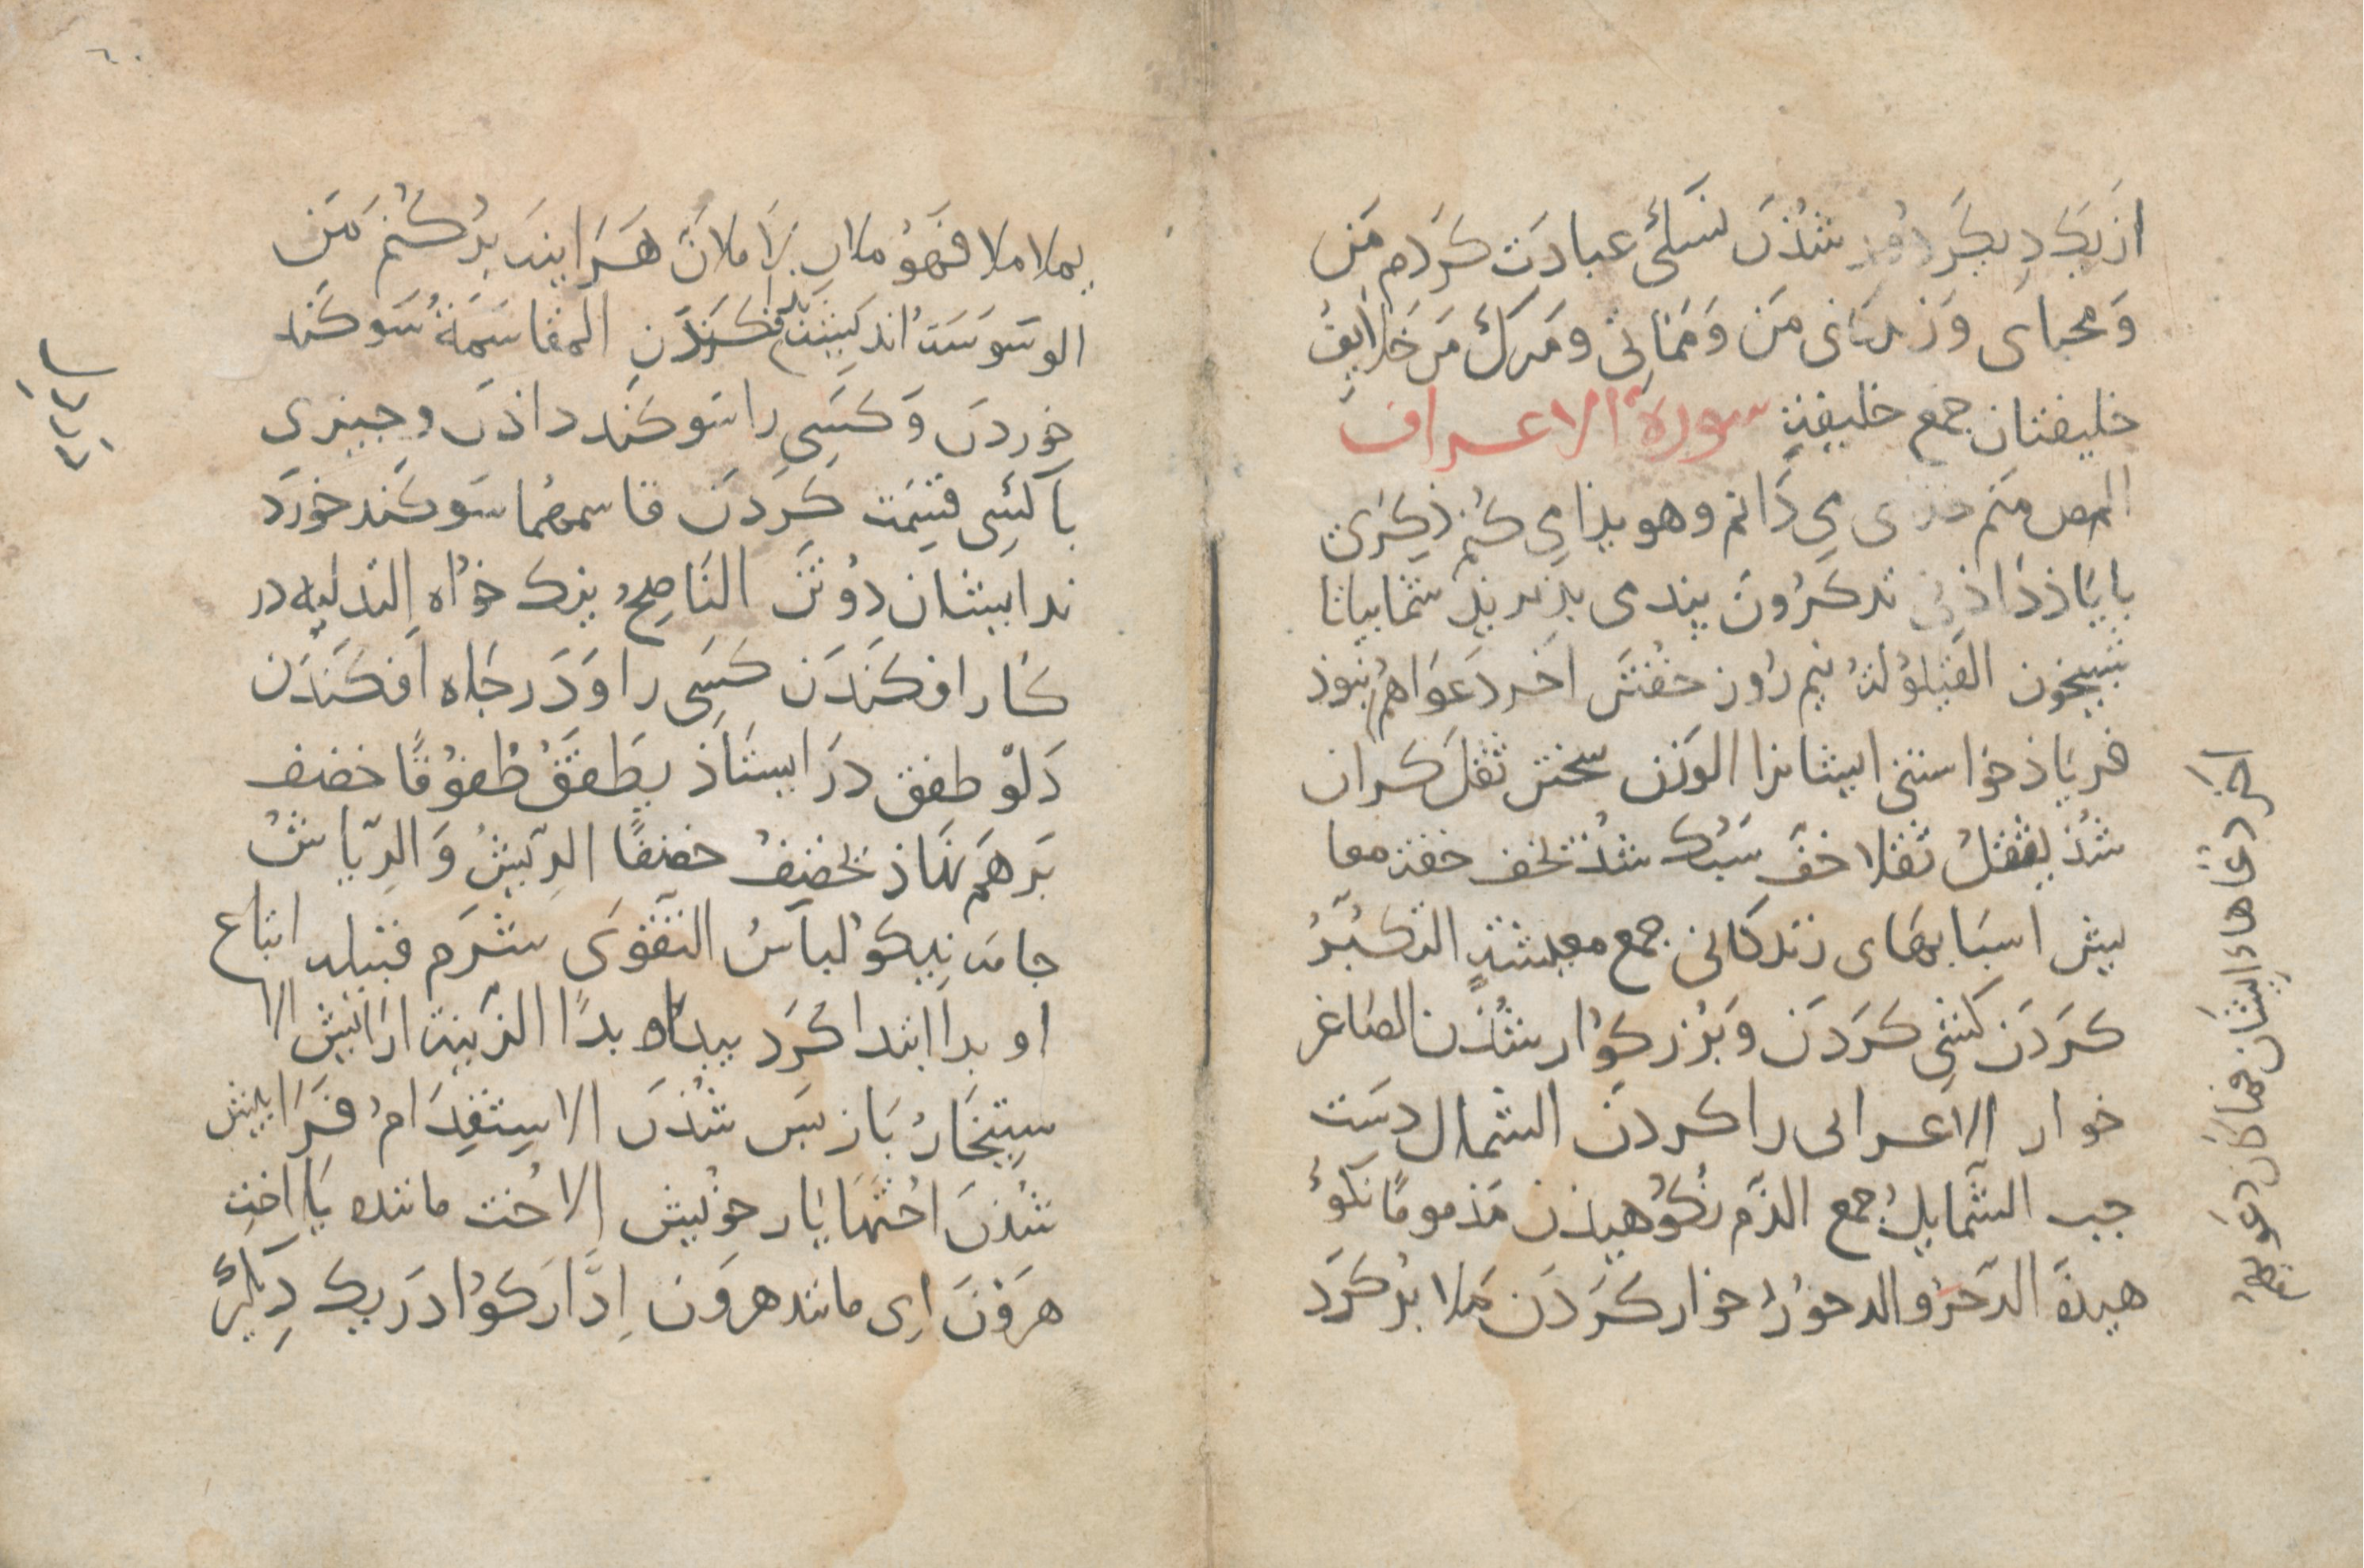 از یکدیگر دور شدن نسكى عبادت کردم من
وَمحیاى وَزندکانی من وَمماتی ومرك من خلایف
خلیفتان جمع خلیفة سورة الاعراف
المص منم خدای می دانم وهویدا می کنم ذکری
با یاذ داذنی تذکرون پندی پذیرید شما بیاتا
شبیخون القیلولة نیم روز خفتن اخر دعواهم نبوذ
فریاذ خواستن ایشانرا الوزن سختن ثقل کران
شُذ یثقل ثقلا خف سبک شذ یخف خفة معا
یش اسبابهای زندکانی جمع معیشة التکبر
کردن کشی کردن وبزرکوار شذن الصاغر
خوار الاغرا لی را کردن الشمال دست
جب الشمایل جمع الذم نکوهیذن مذموما نکو
هیذه الدحر والدحور خوار کردن ملا بر کرد
اخر دعاهاء ایشان فما کان دعویهم
یملا ملا فهو مال لاملان هراینه بر کنم من
الوسوسة اندیشه افکندن المقاسمة سوکند
خوردن وَکسی را سوکند داذن وجیزی
با کسی قسمت کردن قاسمهما سوکند خورد
ندایشان دوتن الناصح نیک خواه التدلیه در
کار افکندن کسی را وَدر جاه افکندن
دَلْو طفق درایستاذ یطفق طفوقا خصف
برهم نهاذ یخصف خصفا الریش وَالریاش
جامه نیکو لباس التقوی شرم قبیله اتباع
او بدا ابتدا کرد یبداه بدا الزینة ارایش الا
ستیخار باز پس شذن الاستقدام فرا پیش
شذن اختها یار خویش الاخت مانند یا اخت
هرون ای مانند هرون ادارکوا در یک دیکر